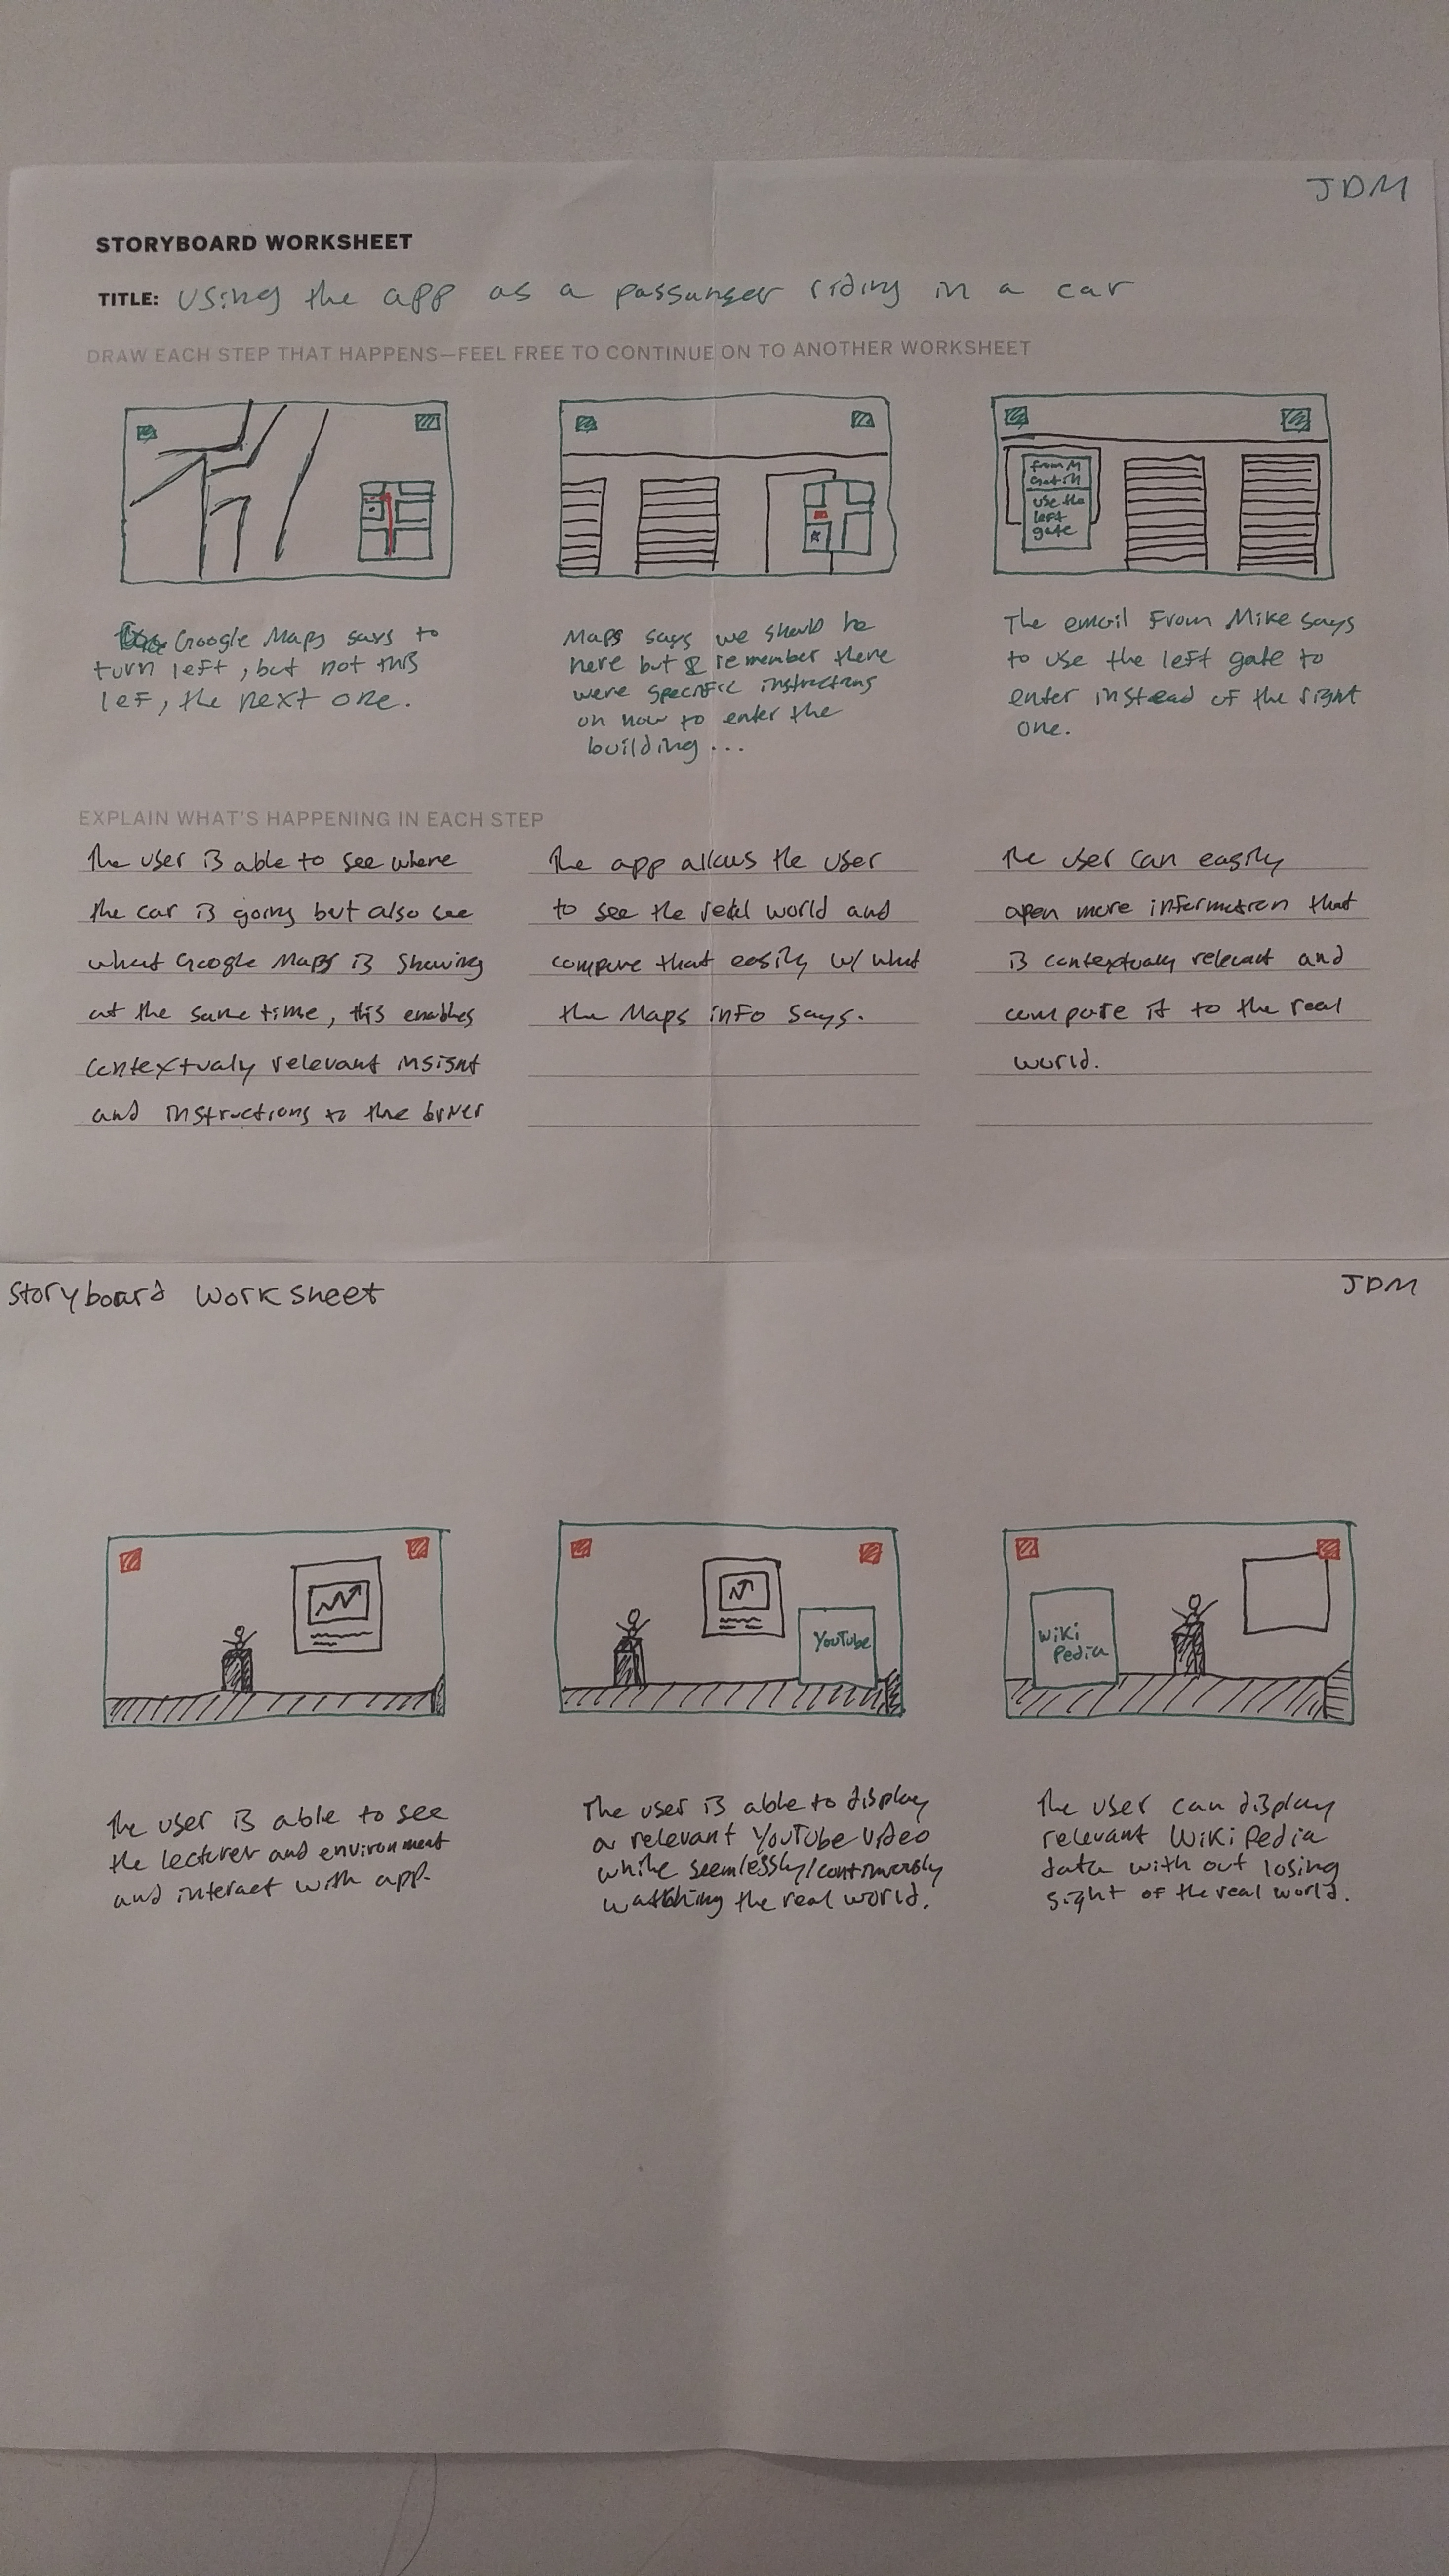 JDM
STORYBOARD WORKSHEET
TITLE: Using the app as a passanger riding in a car
DRAW EACH STEP THAT HAPPENS—FEEL FREE TO CONTINUE ON TO ANOTHER WORKSHEET
from M
use the
left
gate
Google Maps says to
turn left, but not this
lef, the next one.
Maps says we should be
here but I remember there
were specific instructions
on how to enter the
building...
The email From Mike says
to use the left gate to
enter instead of the right
one.
EXPLAIN WHAT'S HAPPENING IN EACH STEP
The user is able to see where
the car is going but also see
what Google Maps is showing
at the same time, this enables
contextualy relevant insight
and instructions to the driver
The app allows the user
to see the real world and
compare that easily w/ what
the Maps info says.
The user can easily
open more information that
is contextualy relevant and
compare it to the real
world.
Storyboard Worksheet
JDM
YouTube
Wiki
Pedia
The user is able to see
the lecturer and environment
and interact with app.
The user is able to display
a relevant YouTube video
while seemlessly/continuously
watching the real world.
The user can display
relevant WikiPedia
data with out losing
sight of the real world.